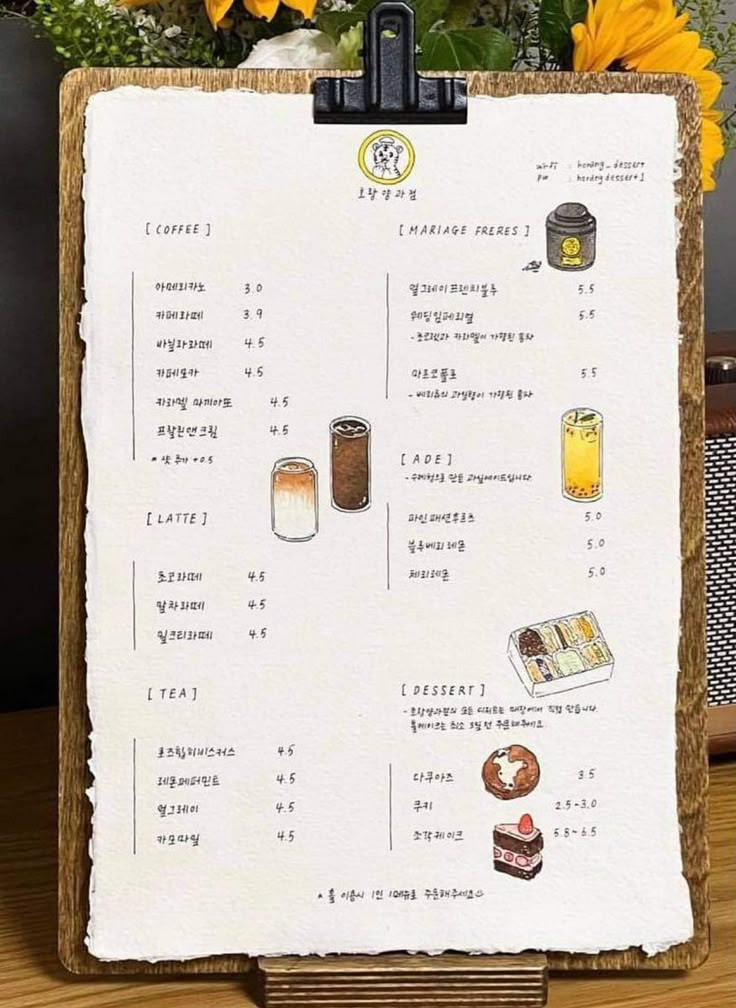 호랑양과점
wi-fi : horang_dessert
pw : horangdessert1
[ COFFEE ]
아메리카노 3.0
카페라떼 3.9
바닐라라떼 4.5
카페모카 4.5
카라멜 마끼아또 4.5
프랄린앤크림 4.5
* 샷 추가 +0.5
[ LATTE ]
초코라떼 4.5
말차라떼 4.5
밀크티라떼 4.5
[ TEA ]
로즈힙히비스커스 4.5
레몬페퍼민트 4.5
얼그레이 4.5
카모마일 4.5
[ MARIAGE FRERES ]
얼그레이프렌치블루 5.5
웨딩임페리얼 5.5
- 초콜릿과 카라멜이 가향된 홍차
마르코폴로 5.5
- 베리류의 과일향이 가향된 홍차
[ ADE ]
- 수제청으로 만든 과일에이드입니다.
파인패션후르츠 5.0
블루베리레몬 5.0
체리레몬 5.0
[ DESSERT ]
- 호랑양과점의 모든 디저트는 매장에서 직접 만듭니다.
홀케이크는 최소 3일 전 주문해주세요.
다쿠아즈 3.5
쿠키 2.5~3.0
조각케이크 5.8~6.5
* 홀 이용시 1인 1메뉴로 주문해주세요